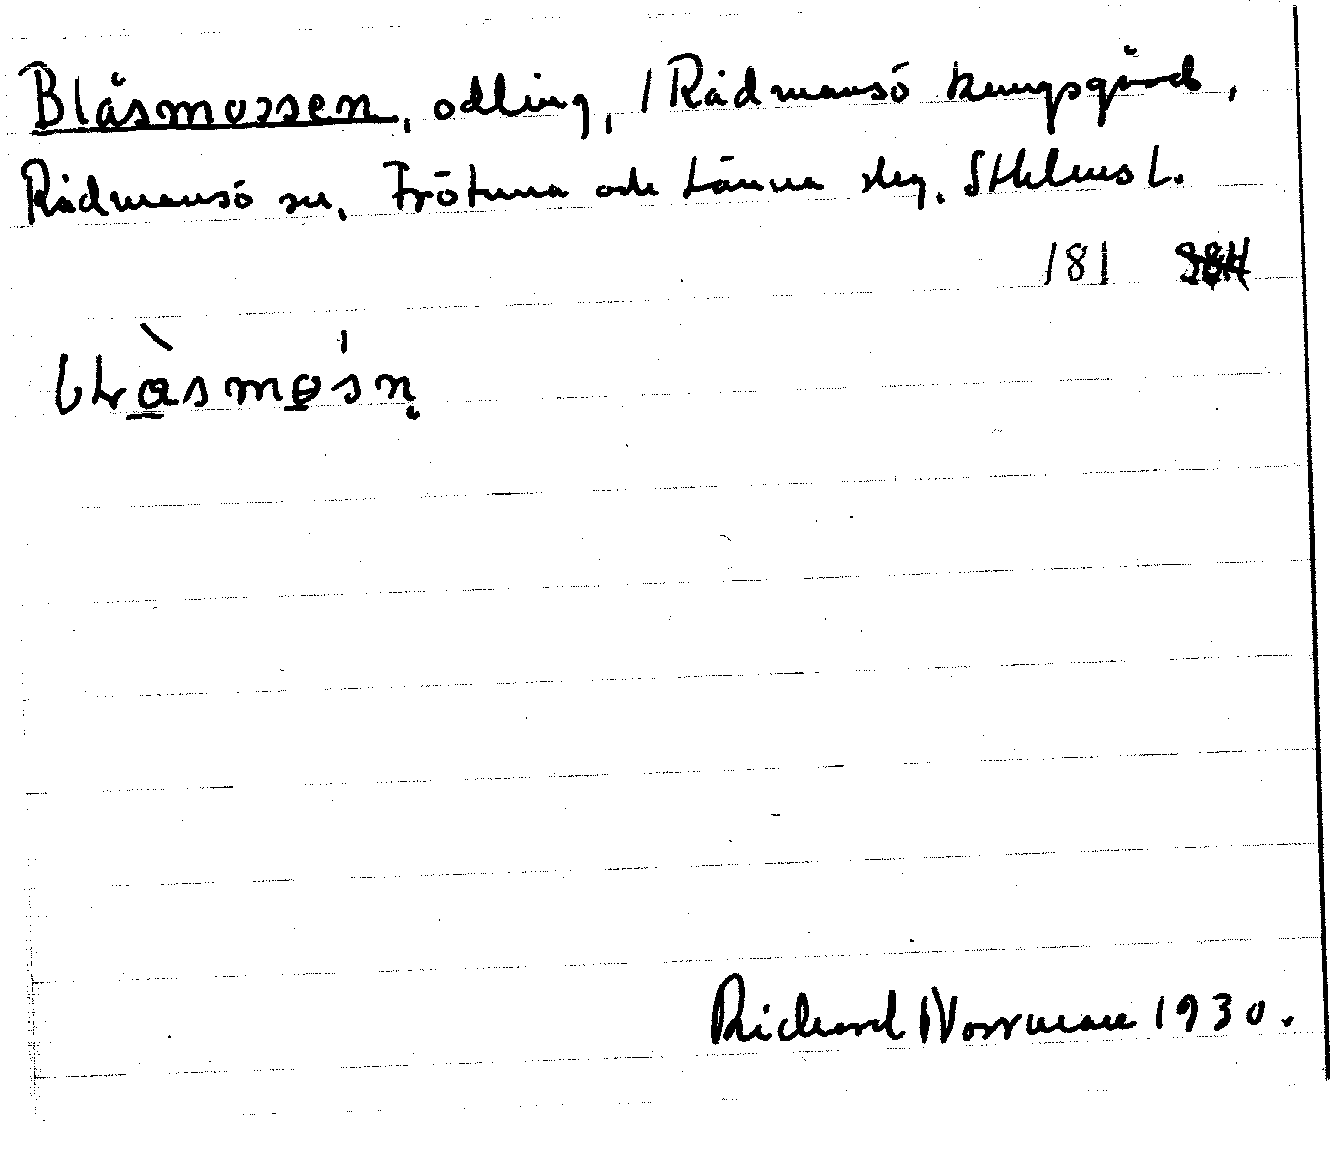 Blåsmossen, odling, / Rådmansö kungsgård,
Rådmansö sn, Frötuna och Länna skg. Sthlms l.
181
Richard Norrman 1930.